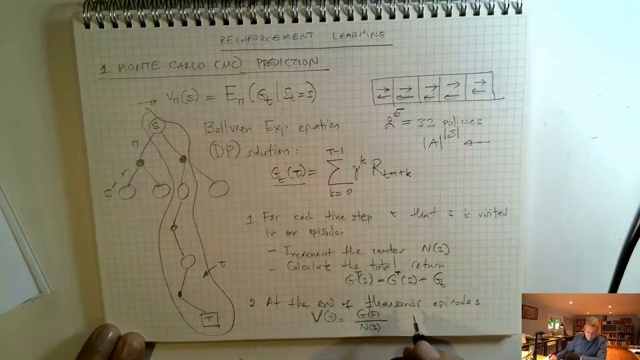 REINFORCEMENT LEARNING
1. MONTE CARLO (MC) PREDICTION
→ Vπ(s) = Eπ(Gt | St=s)
2^5 = 32 policies
|A|^|S| ←
Bellman Exp equation
(DP) solution:
Gt(τ) = Σ_{k=0}^{T-1} γ^k R_{t+1+k}
S
π
r
s'
τ
T
1. For each time step t that s is visited
in an episode
- Increment the counter N(s)
- Calculate the total return
G^T(s) = G^T(s) + Gt
2. At the end of thousands episodes
V(s) = G(s) / N(s)